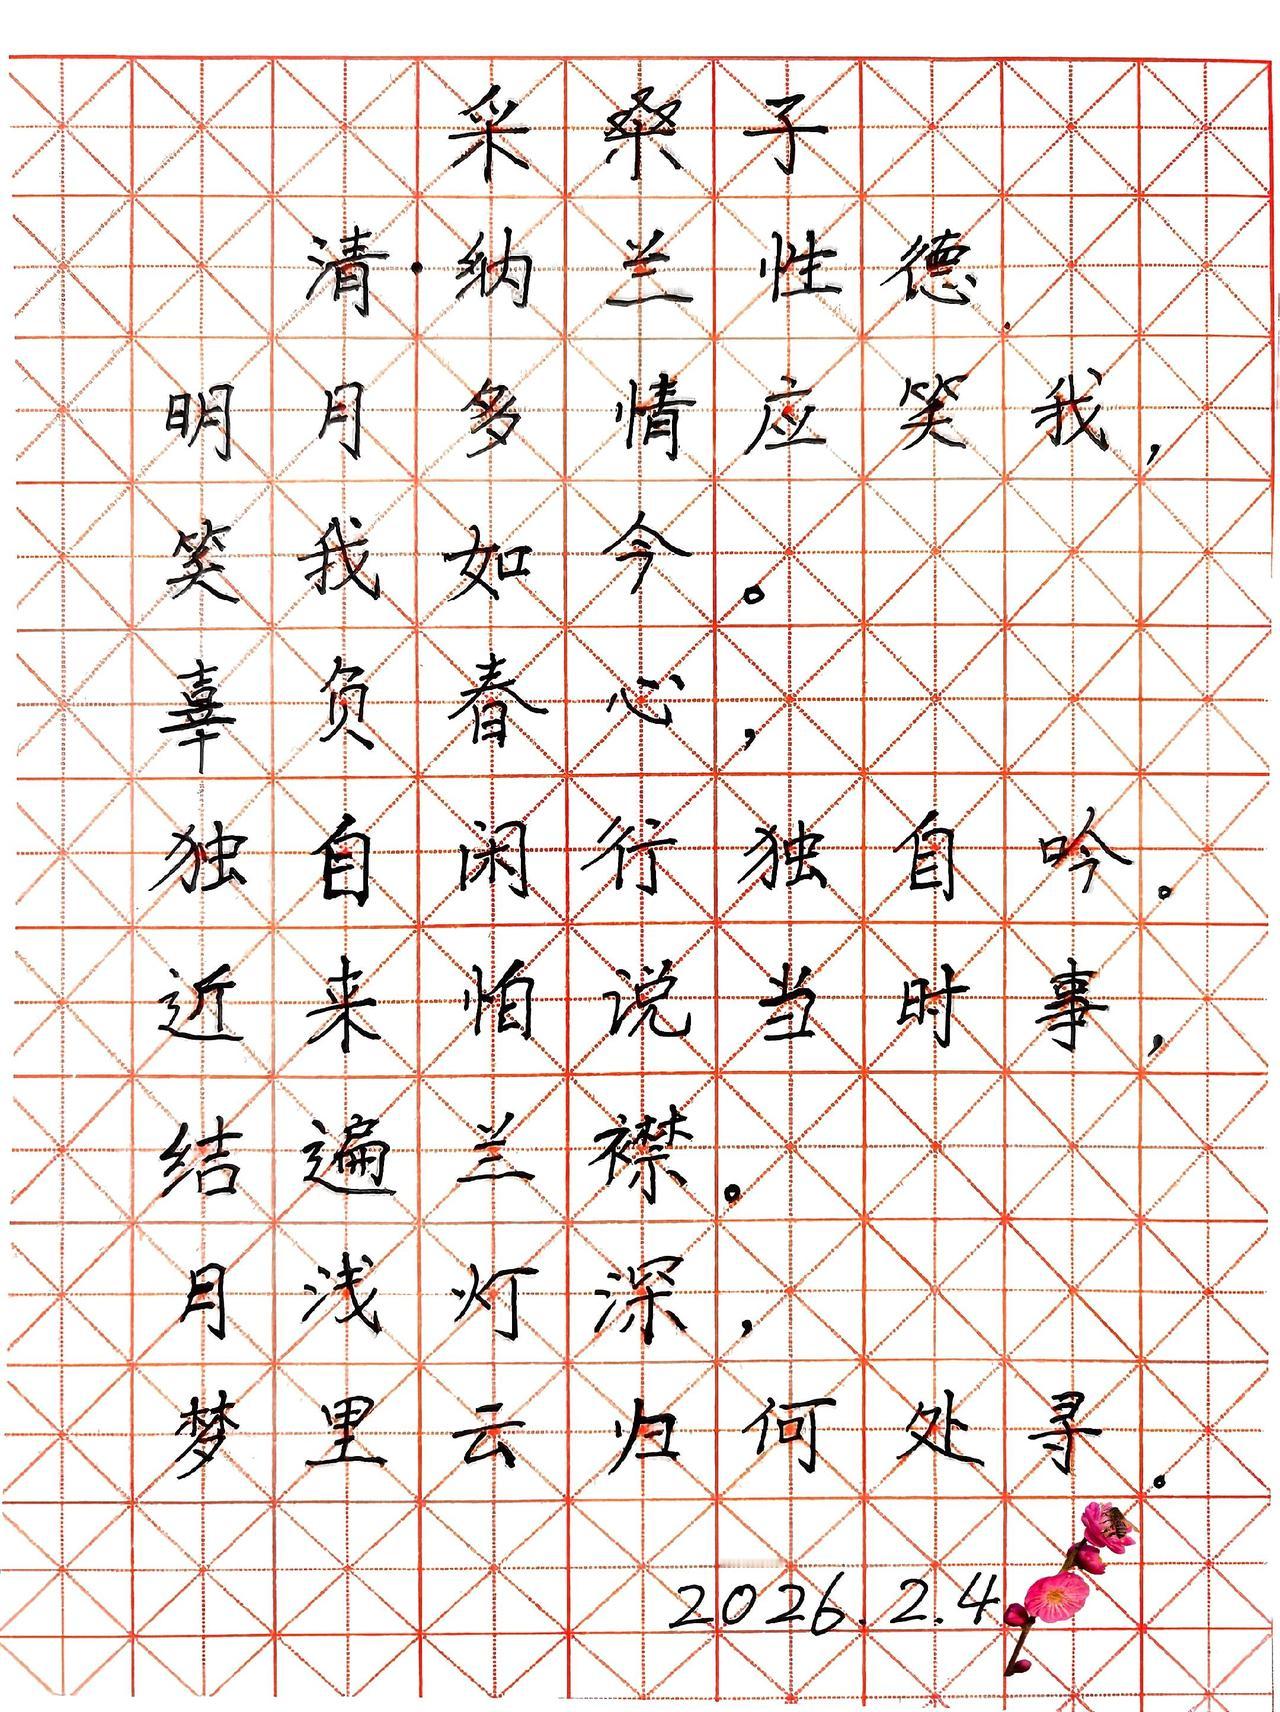 采桑子
清·纳兰性德
明月多情应笑我，
笑我如今。
辜负春心，
独自闲行独自吟。
近来怕说当时事，
结遍兰襟。
月浅灯深，
梦里云归何处寻。
2026.2.4